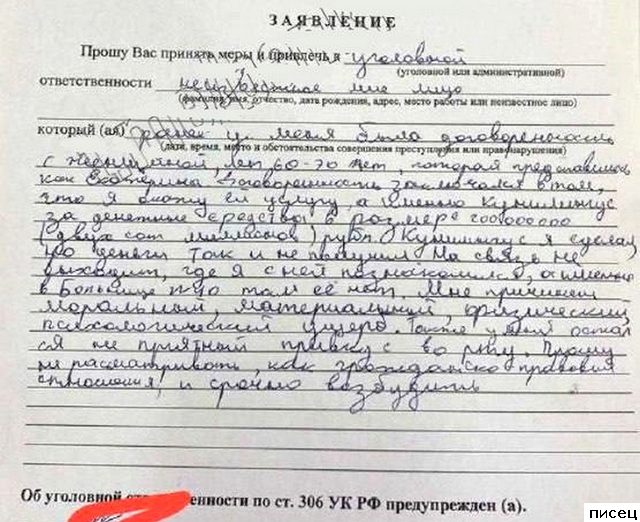 ЗАЯВЛЕНИЕ
Прошу Вас принять меры и привлечь к уголовной
(уголовной или административной)
ответственности неизвестное мне лицо
(фамилия, имя, отчество, дата рождения, адрес, место работы или неизвестное лицо)
который (ая) ранее у меня была договоренность
(дата, время, место и обстоятельства совершения преступления или правонарушения)
с женщиной, лет 60-70 лет, которая представилась
как Екатерина. Договоренность заключался в том,
что я окажу ей услугу, а именно Кунилингус
за денежные средства в размере 200000000
(двух сот миллионов) рубл. Кунилингус я сделал,
но деньги так и не получил. На связь не
выходит, где я с ней познакомился, а именно
в Больнице там её нет. Мне причинен
моральный, материальный, физический,
психологический ущерб. Также у меня остал
ся не приятный привкус во рту. Прошу
не рассматривать, как гражданско правовые
отношения, и срочно возбудить
Об уголовной ответственности по ст. 306 УК РФ предупрежден (а).
писец